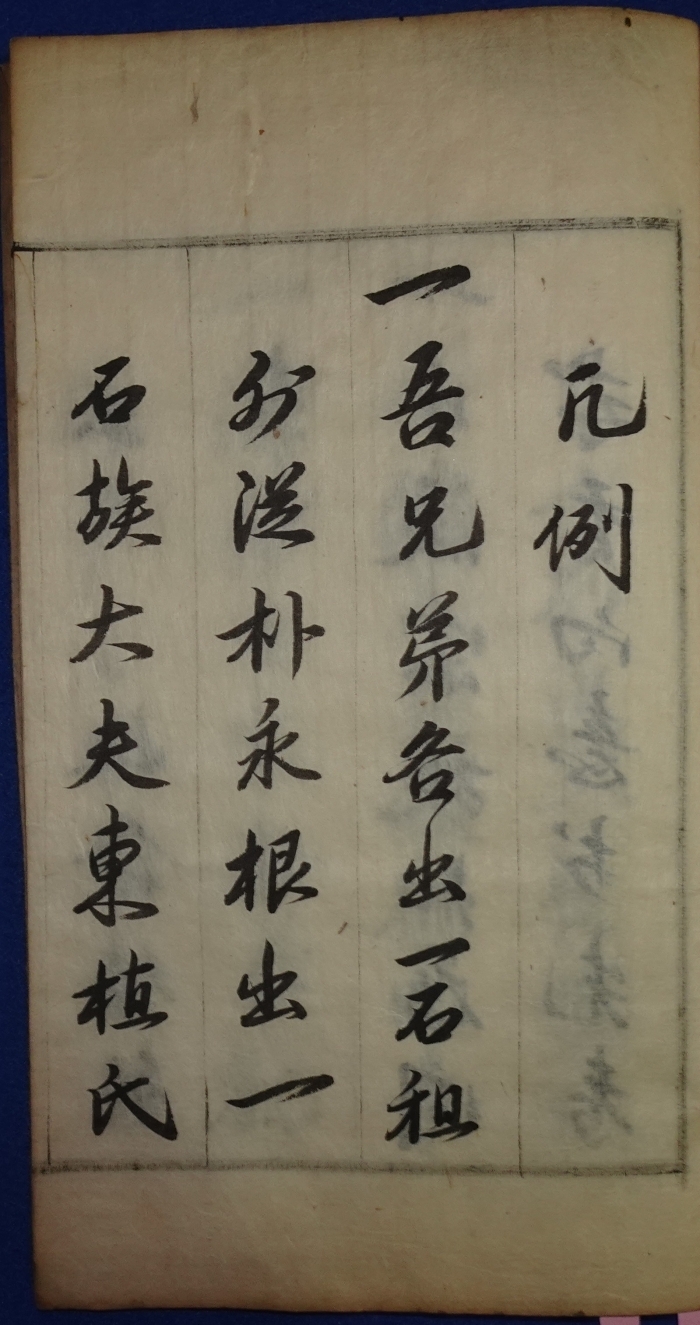 凡例
一吾兄弟各出一石租
外從朴永根出一
石族大夫東植氏